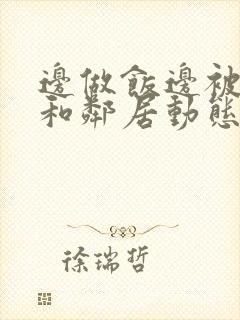 邊做飯邊被
和鄰居動態
徐瑞哲